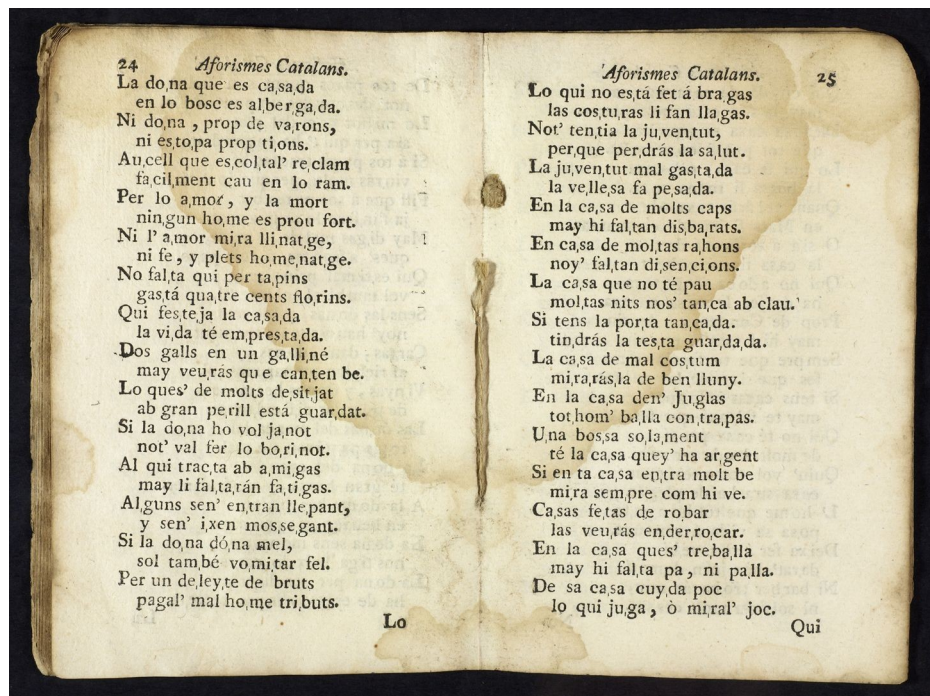 24 Aforismes Catalans.
La do,na que es ca,sa,da
en lo bosc es al,ber,ga,da.
Ni do,na , prop de va,rons,
ni es,to,pa prop ti,ons.
Au,cell que es,col,tal' re,clam
fa,cil,ment cau en lo ram.
Per lo a,mor , y la mort
nin,gun ho,me es prou fort.
Ni l' a,mor mi,ra lli,nat,ge,
ni fe , y plets ho,me,nat,ge.
No fal,ta qui per ta,pins
gas,tá qua,tre cents flo,rins.
Qui fes,te,ja la ca,sa,da
la vi,da té em,pres,ta,da.
Dos galls en un ga,lli,né
may veu,rás que can,ten be.
Lo ques' de molts de,sit,jat
ab gran pe,rill está guar,dat.
Si la do,na ho vol ja,not
not' val fer lo bo,ri,not.
Al qui trac,ta ab a,mi,gas
may li fal,ta,rán fa,ti,gas.
Al,guns sen' en,tran lle,pant,
y sen' i,xen mos,se,gant.
Si la do,na dó,na mel,
sol tam,bé vo,mi,tar fel.
Per un de,ley,te de bruts
pagal' mal ho,me tri,buts.
Lo
Aforismes Catalans. 25
Lo qui no es,tá fet á bra,gas
las cos,tu,ras li fan lla,gas.
Not' ten,tia la ju,ven,tut,
per,que per,drás la sa,lut.
La ju,ven,tut mal gas,ta,da
la ve,lle,sa fa pe,sa,da.
En la ca,sa de molts caps
may hi fal,tan dis,ba,rats.
En ca,sa de mol,tas ra,hons
noy' fal,tan di,sen,ci,ons.
La ca,sa que no té pau
mol,tas nits nos' tan,ca ab clau.
Si tens la por,ta tan,ca,da.
tin,drás la tes,ta guar,da,da.
La ca,sa de mal cos,tum
mi,ra,rás,la de ben lluny.
En la ca,sa den' Ju,glas
tot hom' ba,lla con,tra,pas.
U,na bos,sa so,la,ment
té la ca,sa quey' ha ar,gent
Si en ta ca,sa en,tra molt be
mi,ra sem,pre com hi ve.
Ca,sas fe,tas de ro,bar
las veu,rás en,der,ro,car.
En la ca,sa ques' tre,ba,lla
may hi fal,ta pa , ni pa,lla.
De sa ca,sa cuy,da poc
lo qui ju,ga , ò mi,ral' joc.
Qui